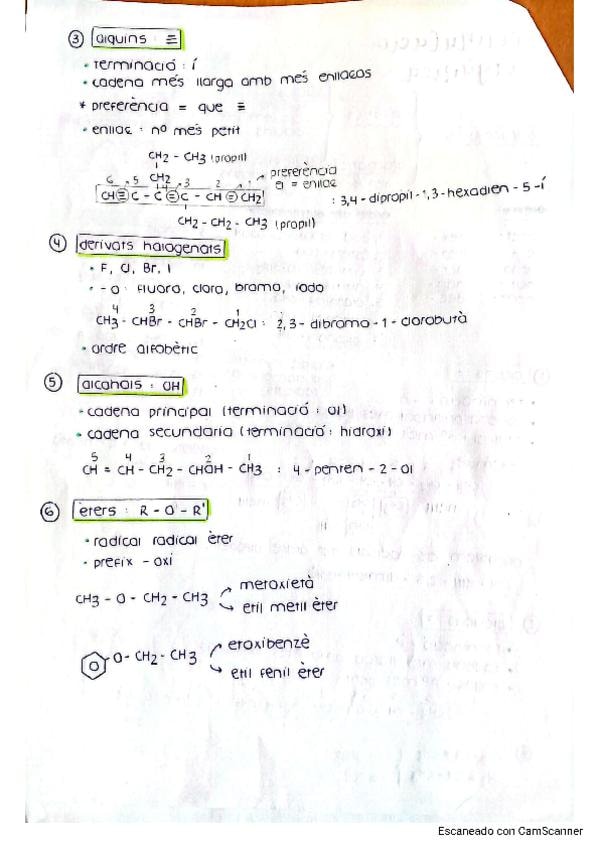 ③ alquins : ≡
• terminació : í
• cadena més llarga amb més enllaços
* preferència = que ≡
• enllaç : nº més petit
CH2 - CH3 (propil)
CH2
preferència
a = enllaç
6 5 4 3 2 1
CH ≡ C - C = C - CH = CH2 : 3,4 - dipropil - 1,3 - hexadien - 5 - í
CH2 - CH2 - CH3 (propil)
④ derivats halogenats
• F, Cl, Br, I
• - o : fluoro, cloro, bromo, iodo
4 3 2 1
CH3 - CHBr - CHBr - CH2Cl : 2,3 - dibromo - 1 - clorobutà
• ordre alfabètic
⑤ alcohols : OH
• cadena principal (terminació : ol)
• cadena secundària (terminació : hidroxi)
5 4 3 2 1
CH = CH - CH2 - CHOH - CH3 : 4 - penten - 2 - ol
⑥ èters : R - O - R'
• radical radical èter
• prefix - oxi
CH3 - O - CH2 - CH3
metoxietà
etil metil èter
O - CH2 - CH3
etoxibenzè
etil fenil èter
Escaneado con CamScanner